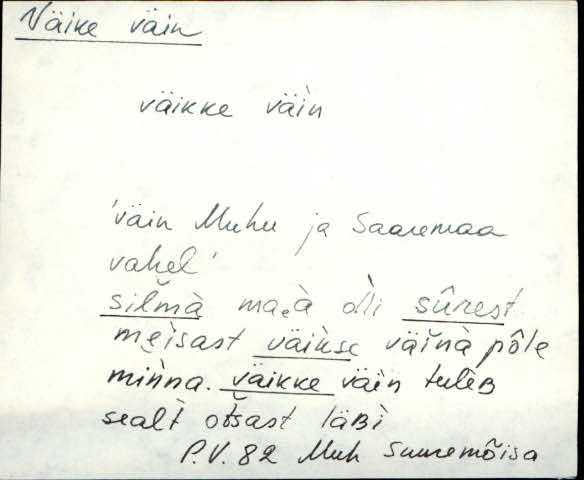 Väike väin
väikke väìn
'väin Muhu ja Saaremaa
vahel'
silmà maa̭à ol̀li sûrest
mei̭sast väikse väi̭nà pôle
miǹna. väikke väin tulèʙ
sealt̀ ot̀šast läʙì
P.V. 82 Muh Suuremõisa